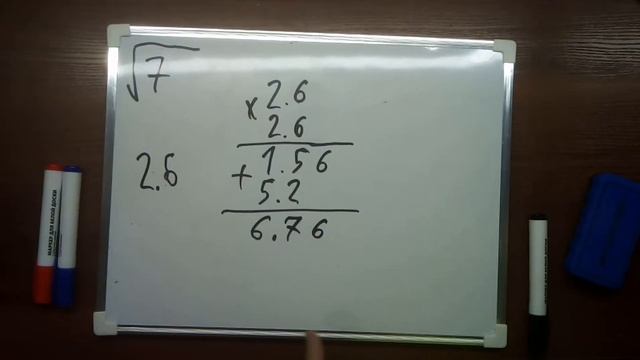 √7
2.6
× 2.6
2.6
+ 1.56
5.2
6.76
МАРКЕР ДЛЯ БЕЛОЙ ДОСКИ